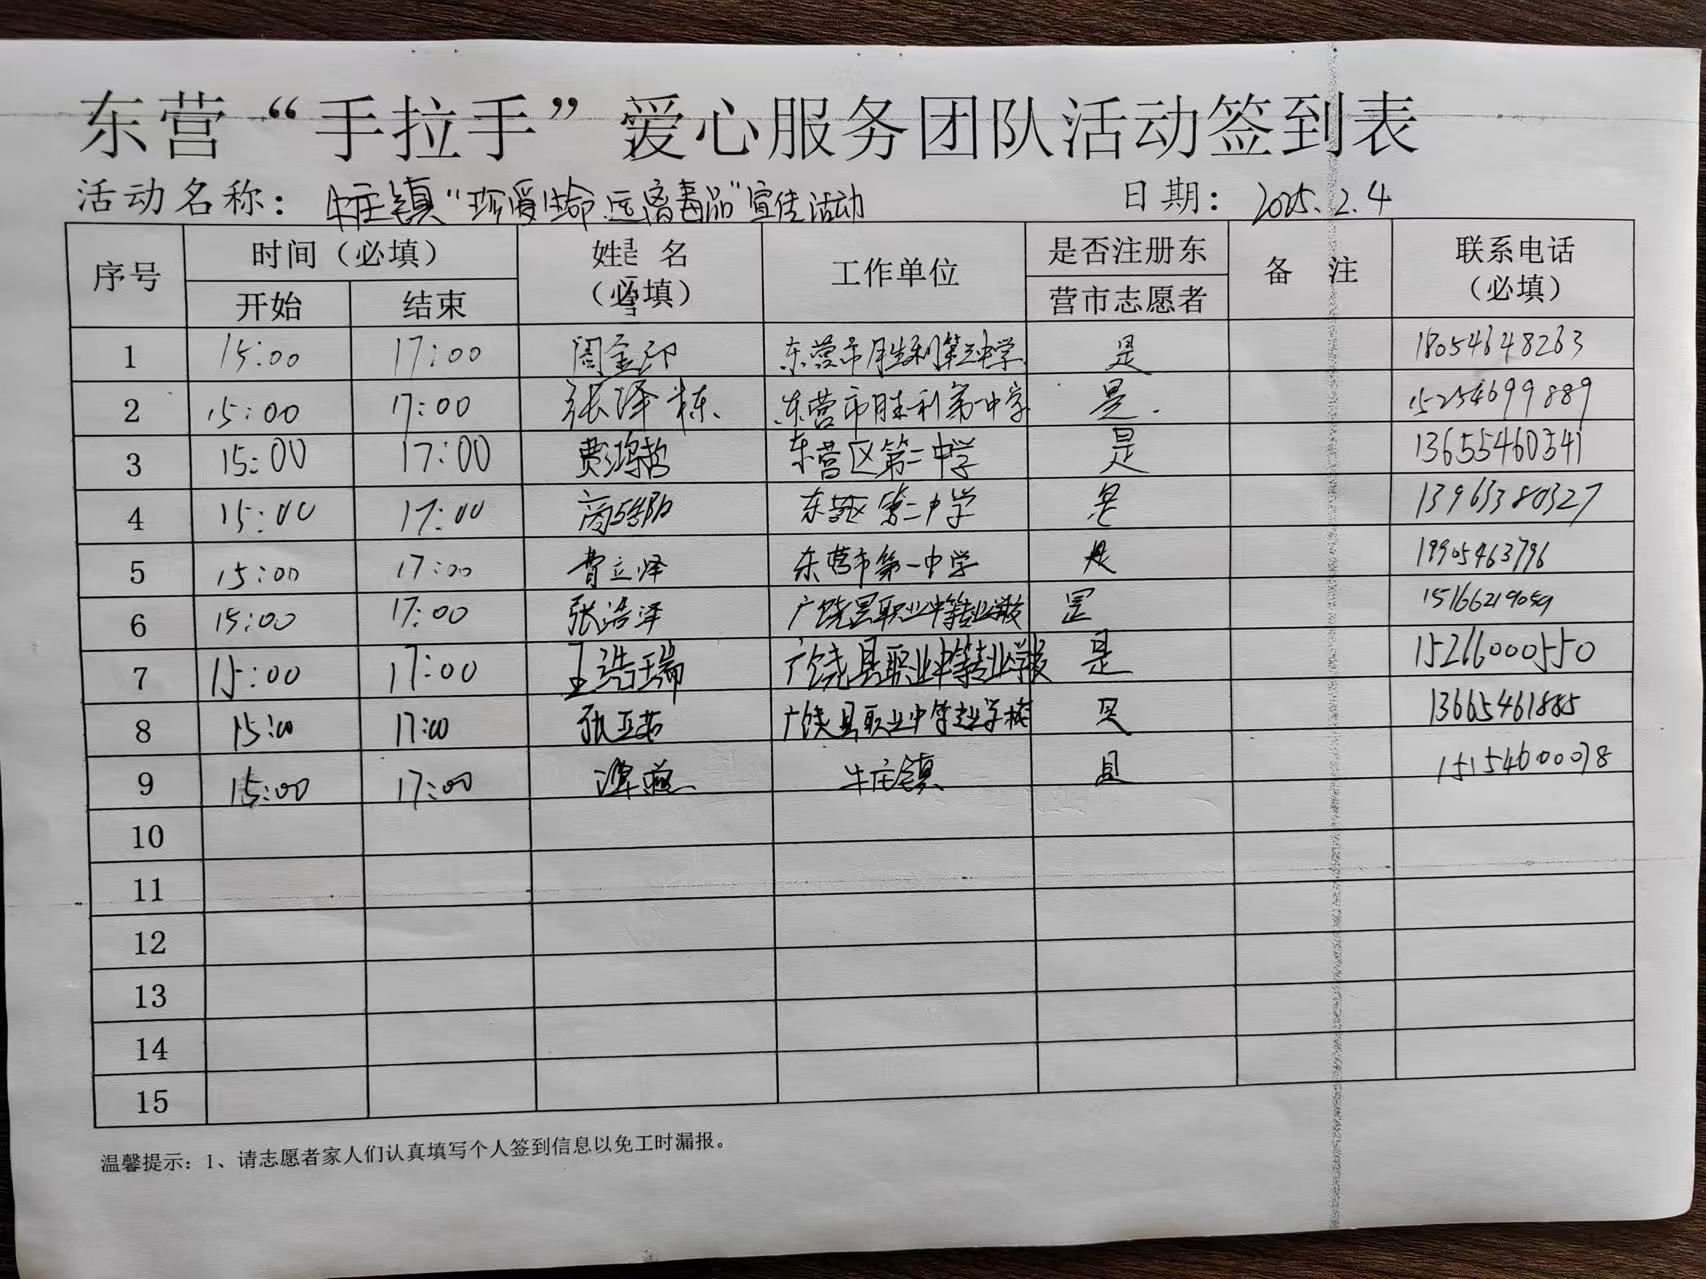 东营“手拉手”爱心服务团队活动签到表
活动名称：牛庄镇“珍爱生命、远离毒品”宣传活动 日期：2025.2.4
序号 时间（必填） 开始 结束 姓名（必填） 工作单位 是否注册东营市志愿者 备注 联系电话（必填）
1 15:00 17:00 东营市胜利第三中学 是 18054648263
2 15:00 17:00 张泽栋 东营市胜利第一中学 是. 15254699889
3 15:00 17:00 费鸿哲 东营区第二中学 是 13655460341
4 15:00 17:00 东营区第二中学 是 13963380327
5 15:00 17:00 费立泽 东营市第一中学 是 19905463796
6 15:00 17:00 张浩泽 广饶县职业中等专业学校 是 15166219059
7 15:00 17:00 王浩瑞 广饶县职业中等专业学校 是 15266000550
8 15:00 17:00 张亚茹 广饶县职业中等专业学校 是 13665461885
9 15:00 17:00 牛庄镇 是 15154600078
10
11
12
13
14
15
温馨提示：1、请志愿者家人们认真填写个人签到信息以免工时漏报。